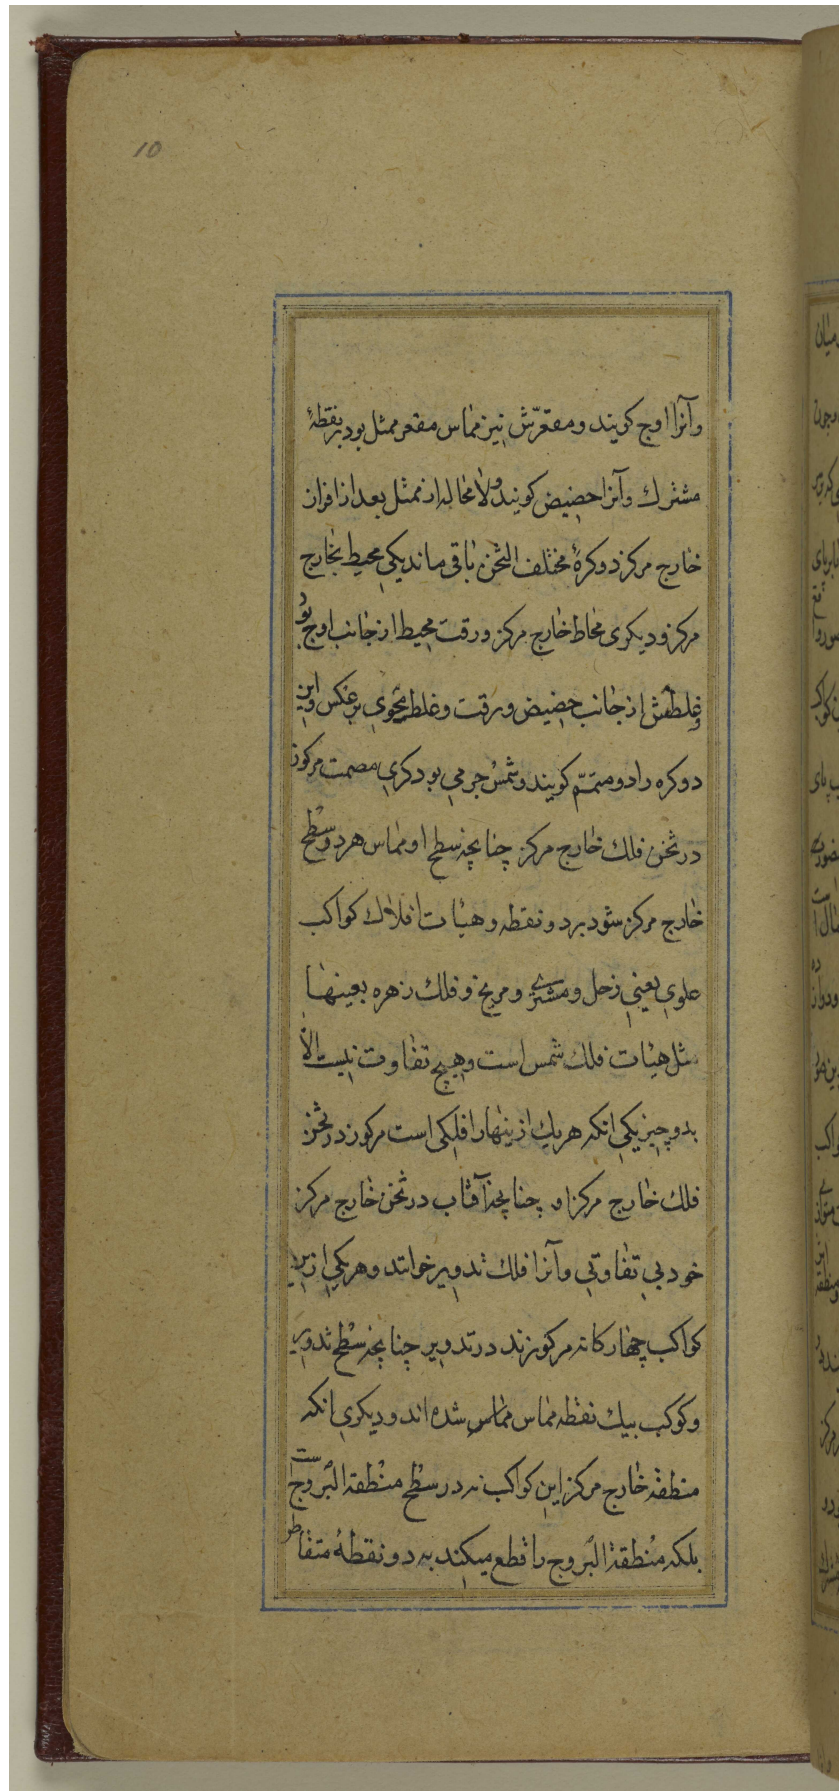 10
وآنرا اوج کویند ومقعرّش نیز مماس مقعر ممثل بود بر نقطهٔ
مشترك وآنرا حضیض کویند ولا محاله از ممثل بعد از افراز
خارج مرکز دو کرهٔ مختلف الثخن باقی ماند یکی محیط بخارج
مرکز و دیکری محاط خارج مرکز ورقت محیط از جانب اوج بود
وغلظش از جانب حضیض ورقت وغلظ محوی بر عکس واین
دو کره را دو متمّم کویند وشمس جرمی بود کری مصمت مرکوز
در ثخن فلك خارج مرکز چنانچه سطح او مماس هر دو سطح
خارج مرکز شود بر دو نقطه وهیات افلاك کواکب
علوی یعنی زحل ومشتری ومریخ وفلك زهره بعینها
مثل هیات فلك شمس است وهیچ تفاوت نیست الا
بدو چیز یکی انکه هریك ازینها را فلکی است مرکوز در ثخن
فلك خارج مرکز او چنانچه آفتاب در ثخن خارج مرکز
خود بی تفاوتی وآنرا فلك تدویر خوانند وهر یکی ازین
کواکب چهارکانه مرکوزند در تدویر چنانچه سطح تدویر
وکوکب بیك نقطه مماس مماس شده اند ودیکری انکه
منطقهٔ خارج مرکز این کواکب نه در سطح منطقة البروج است
بلکه منطقة البروج را قطع میکند به دو نقطهٔ متقاطر